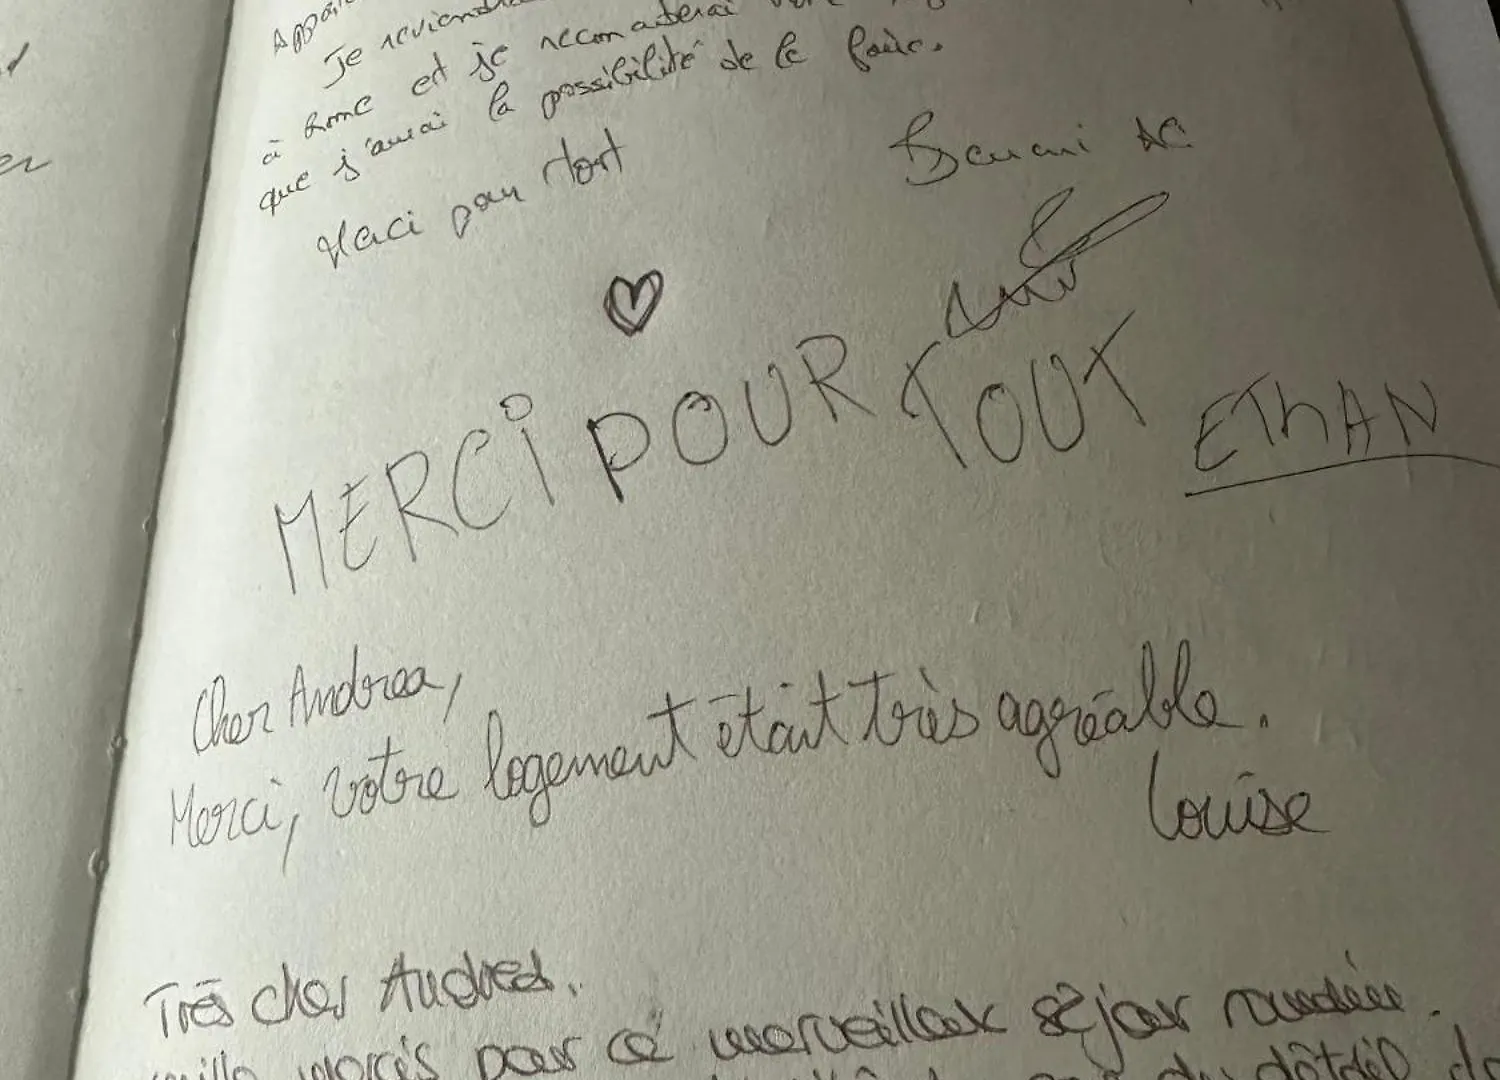 Je reviendrai
à Rome et je recontacterai
que j'aurai la possibilité de le faire.
Merci pour tout
MERCI POUR TOUT
ETHAN
Cher Andrea,
Merci, votre logement était très agréable.
Louise
Très cher Andrea,
mille mercis pour ce merveilleux séjour